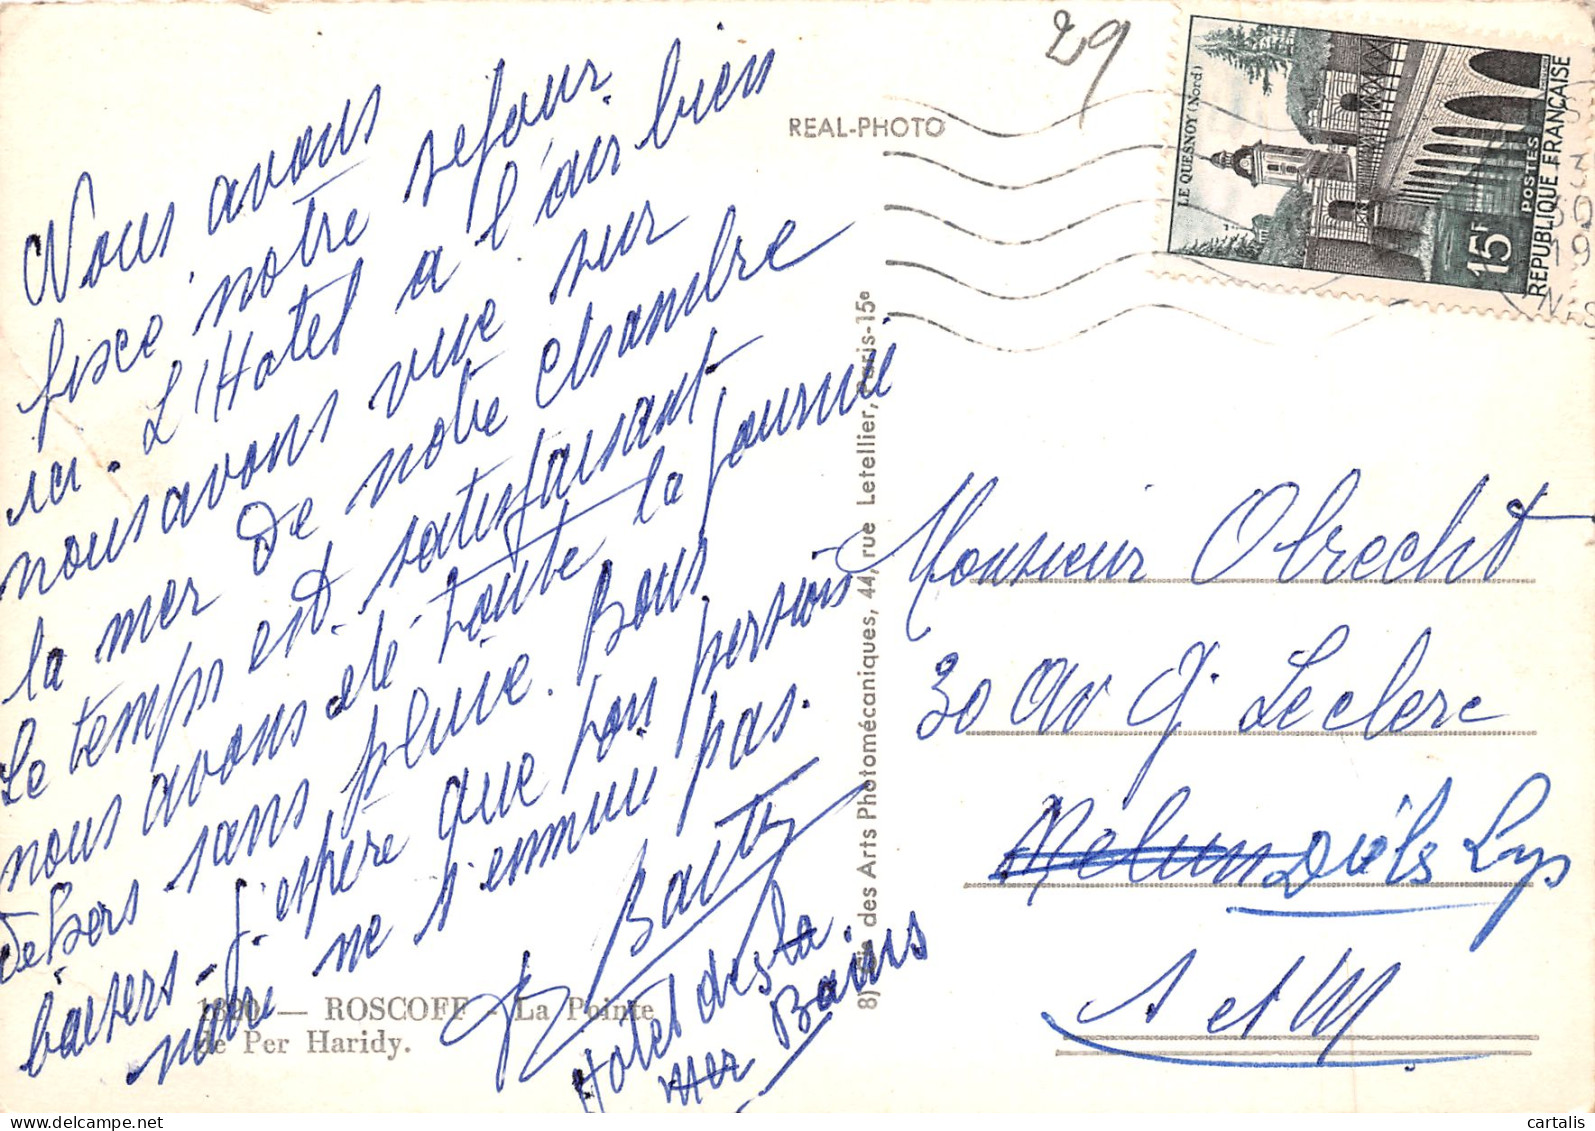 Nous avons
fixé notre séjour
ici. L'Hotel a l'air bien
nous avons vue sur
la mer de notre chambre
Le temps est satisfaisant
nous avons été toute la journée
dehors sans pluie. Bons
baisers - j'espère que ton
ne s'ennuie pas.
Hotel des la
mer Bains
1320. — ROSCOFF - La Pointe
de Per Haridy.
8) Sie des Arts Photomécaniques, 44, rue Letellier, Paris-15e
REAL-PHOTO
29
LE QUESNOY (Nord)
15F
POSTES
REPUBLIQUE FRANÇAISE
Monsieur Obrecht
30 Av G. Leclerc
Melun Lys
S et M
cartalis